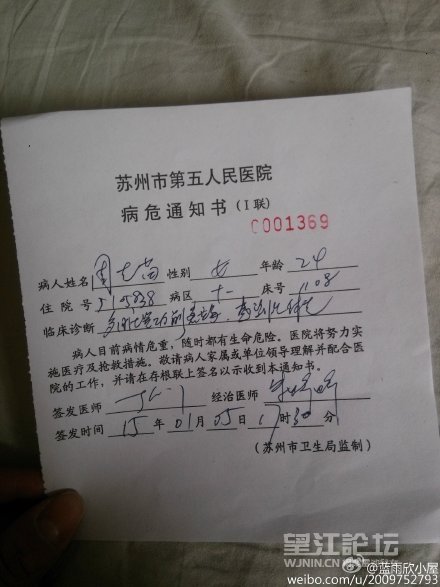 苏州市第五人民医院
病危通知书（I联）
C001369
病人姓名 周 苗 性别 女 年龄 24
住院号 病区 十一 床号 1108
临床诊断
病人目前病情危重，随时都有生命危险。医院将努力实
施医疗及抢救措施。敬请病人家属或单位领导理解并配合医
院的工作，并请在存根联上签名以示收到本通知书。
签发医师 经治医师
签发时间 15 年 01 月 05 日 17 时 30 分
（苏州市卫生局监制）
望江論坛
WJNIN.CN
@蓝雨欣小屋
weibo.com/u/2009752793